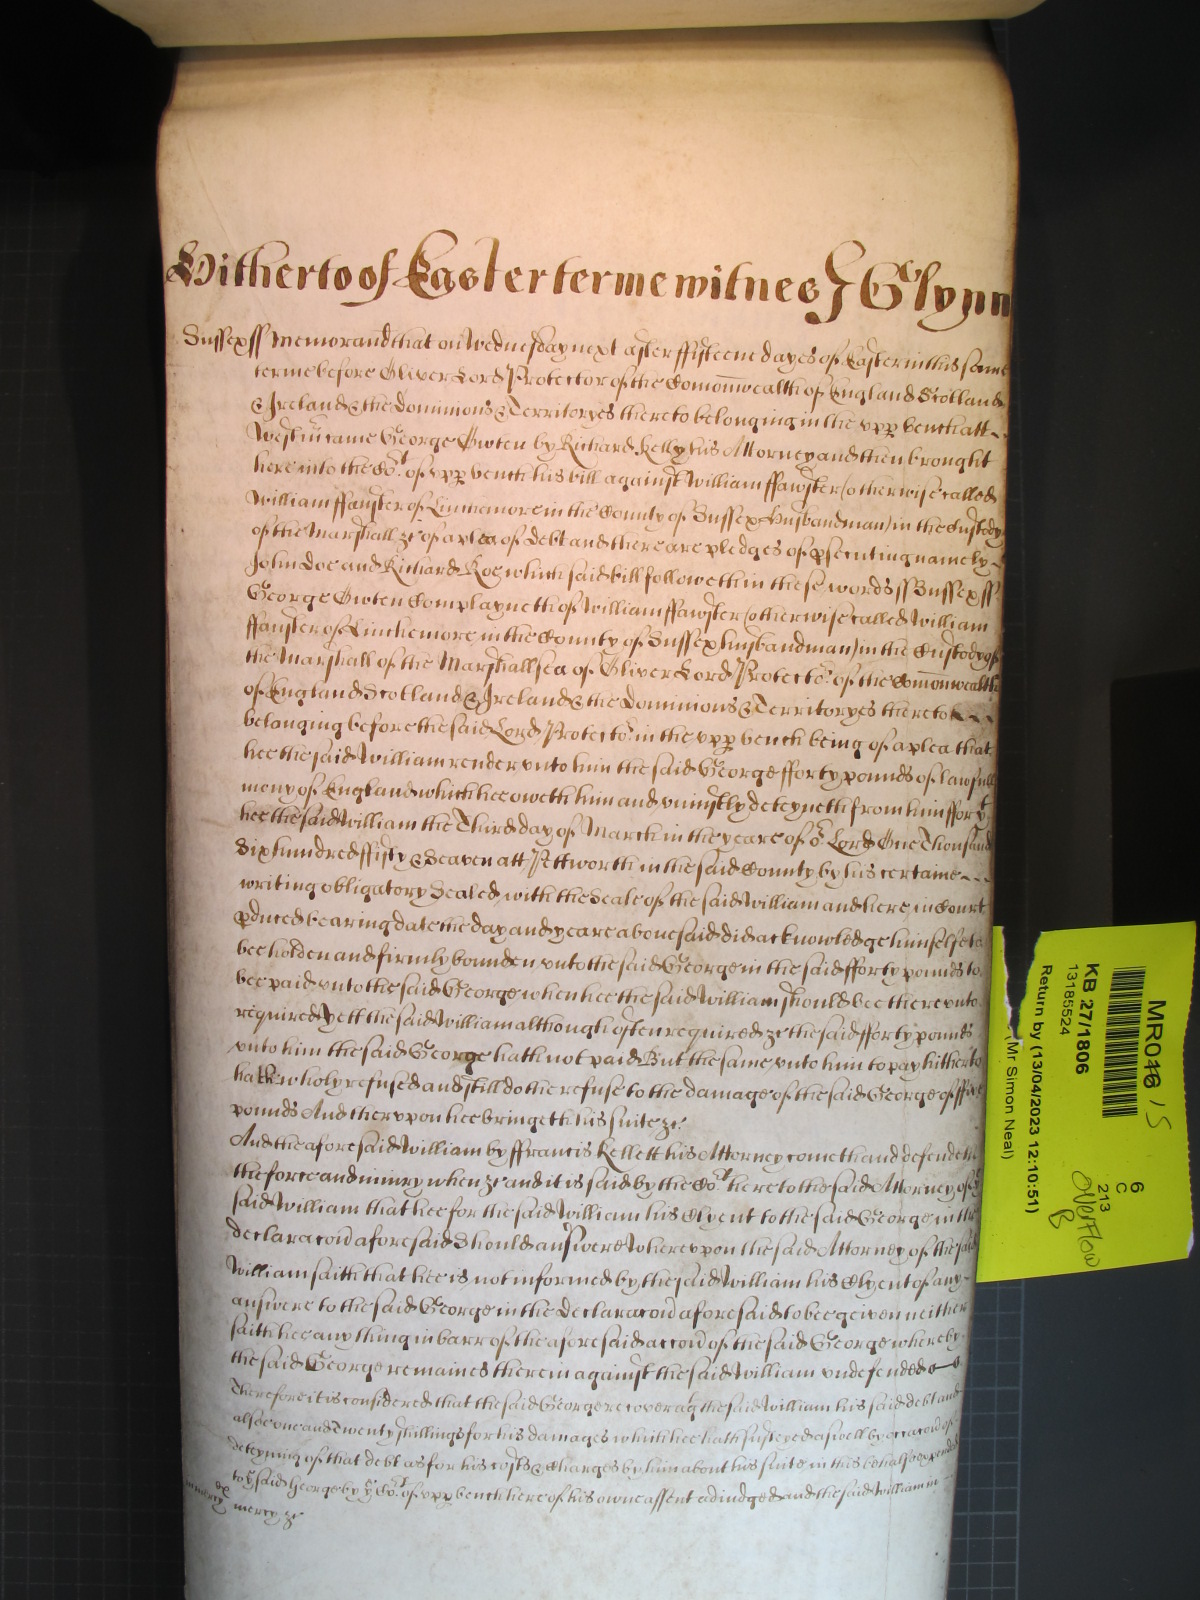 Hitherto of Easter terme witnes J Glynn
Sussex ss Memorand that on Wednesday next after ffifteene dayes of Easter in this same
terme before Oliver Lord Protector of the Comonwealth of England Scotland
& Ireland & the Dominions & Territoryes thereto belonging in the upp bench att
Westm came George Owten by Richard Kelly his Attorney and then brought
here into the Cot of upp bench his bill against William ffawster (otherwise called
William ffauster of Linchemore in the County of Sussex husbandman) in the Custody
of the Marshall &c of a plea of debt and there are pledges of psecuting namely
John Doe and Richard Roe which said bill followeth in these words ss Sussex ss
George Owten Complayneth of William ffawster (otherwise called William
ffauster of Linchemore in the County of Sussex husbandman) in the Custody of
the Marshall of the Marshallsea of Oliver Lord Protector of the Comonwealth
of England Scotland & Ireland & the Dominions & Territoryes thereto
belonging before the said Lord Protector in the upp bench being of a plea that
hee the said William render unto him the said George fforty pounds of lawfull
mony of England which hee oweth him and uniustly deteyneth from him ffor yt
hee the said William the Third day of March in the yeare of or Lord One Thousand
Six hundred ffifty & Seaven att Pettworth in the said County by his certaine
writing obligatory Sealed with the Seale of the said William and here in Court
pduced bearing date the day and yeare abovesaid did acknowledge himselfe to
bee holden and firmly bounden unto the said George in the said fforty pounds to
bee paid unto the said George when hee the said William should bee thereunto
required Yett the said William although often required &c the said fforty pounds
unto him the said George hath not paid But the same unto him to pay hitherto
hath wholy refused and still doth refuse to the damage of the said George of ffive
pounds And thereupon hee bringeth his suite &c
And the aforesaid William by ffrancis Kellett his Attorney cometh and defendeth
the force and iniury when &c and it is said by the Cot here to the said Attorney of ye
said William that hee for the said William his Clyent to the said George in the
declaracon aforesaid Should answere Whereupon the said Attorney of the said
William saith that hee is not informed by the said William his Clyent of any
answere to the said George in the declaracon aforesaid to bee geiven neither
saith hee any thing in barr of the aforesaid accon of the said George whereby
the said George remaines therein against the said William undefended
Therefore it is considered that the said George recover agt the said William his said debt and
alsoe one and Twenty shillings for his damages which hee hath susteyned aswell by occacon of
deteyning of that debt as for his costs & Charges by him about his suite in this behalfe expended
to ye said George by ye Cot of upp bench here of his owne assent adiudged and the said William in
mercy &c
in mercy
MR046 15
KB 27/1806
13185524
Return by (13/04/2023 12:10:51)
(Mr Simon Neal)
6
C
213
Overflow
B